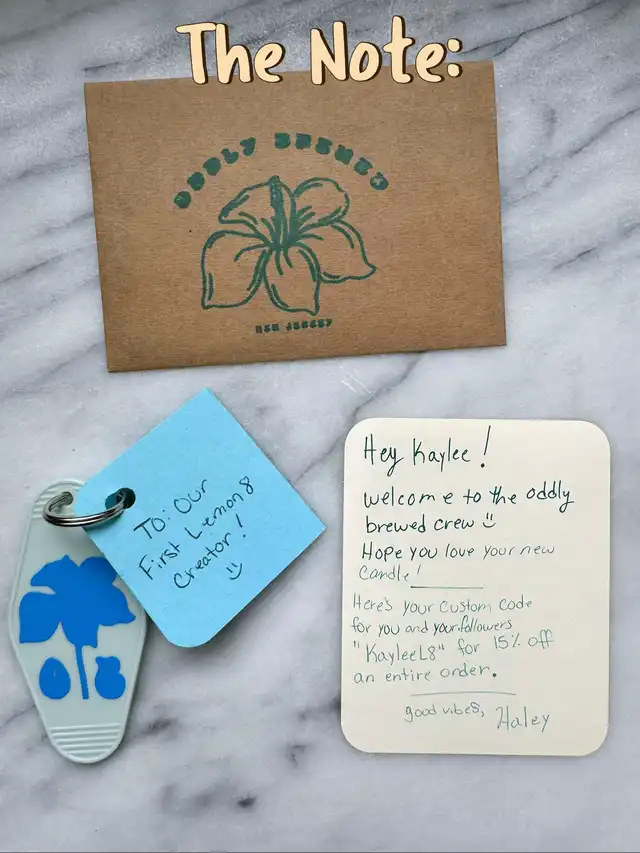 The Note:
ODDLY BREWED
NEW JERSEY
To: Our
First Lemon8
Creator!
Hey Kaylee!
welcome to the oddly
brewed crew
Hope you love your new
candle!
Here's your custom code
for you and your followers
"KayleeL8" for 15% off
an entire order.
good vibes, Haley